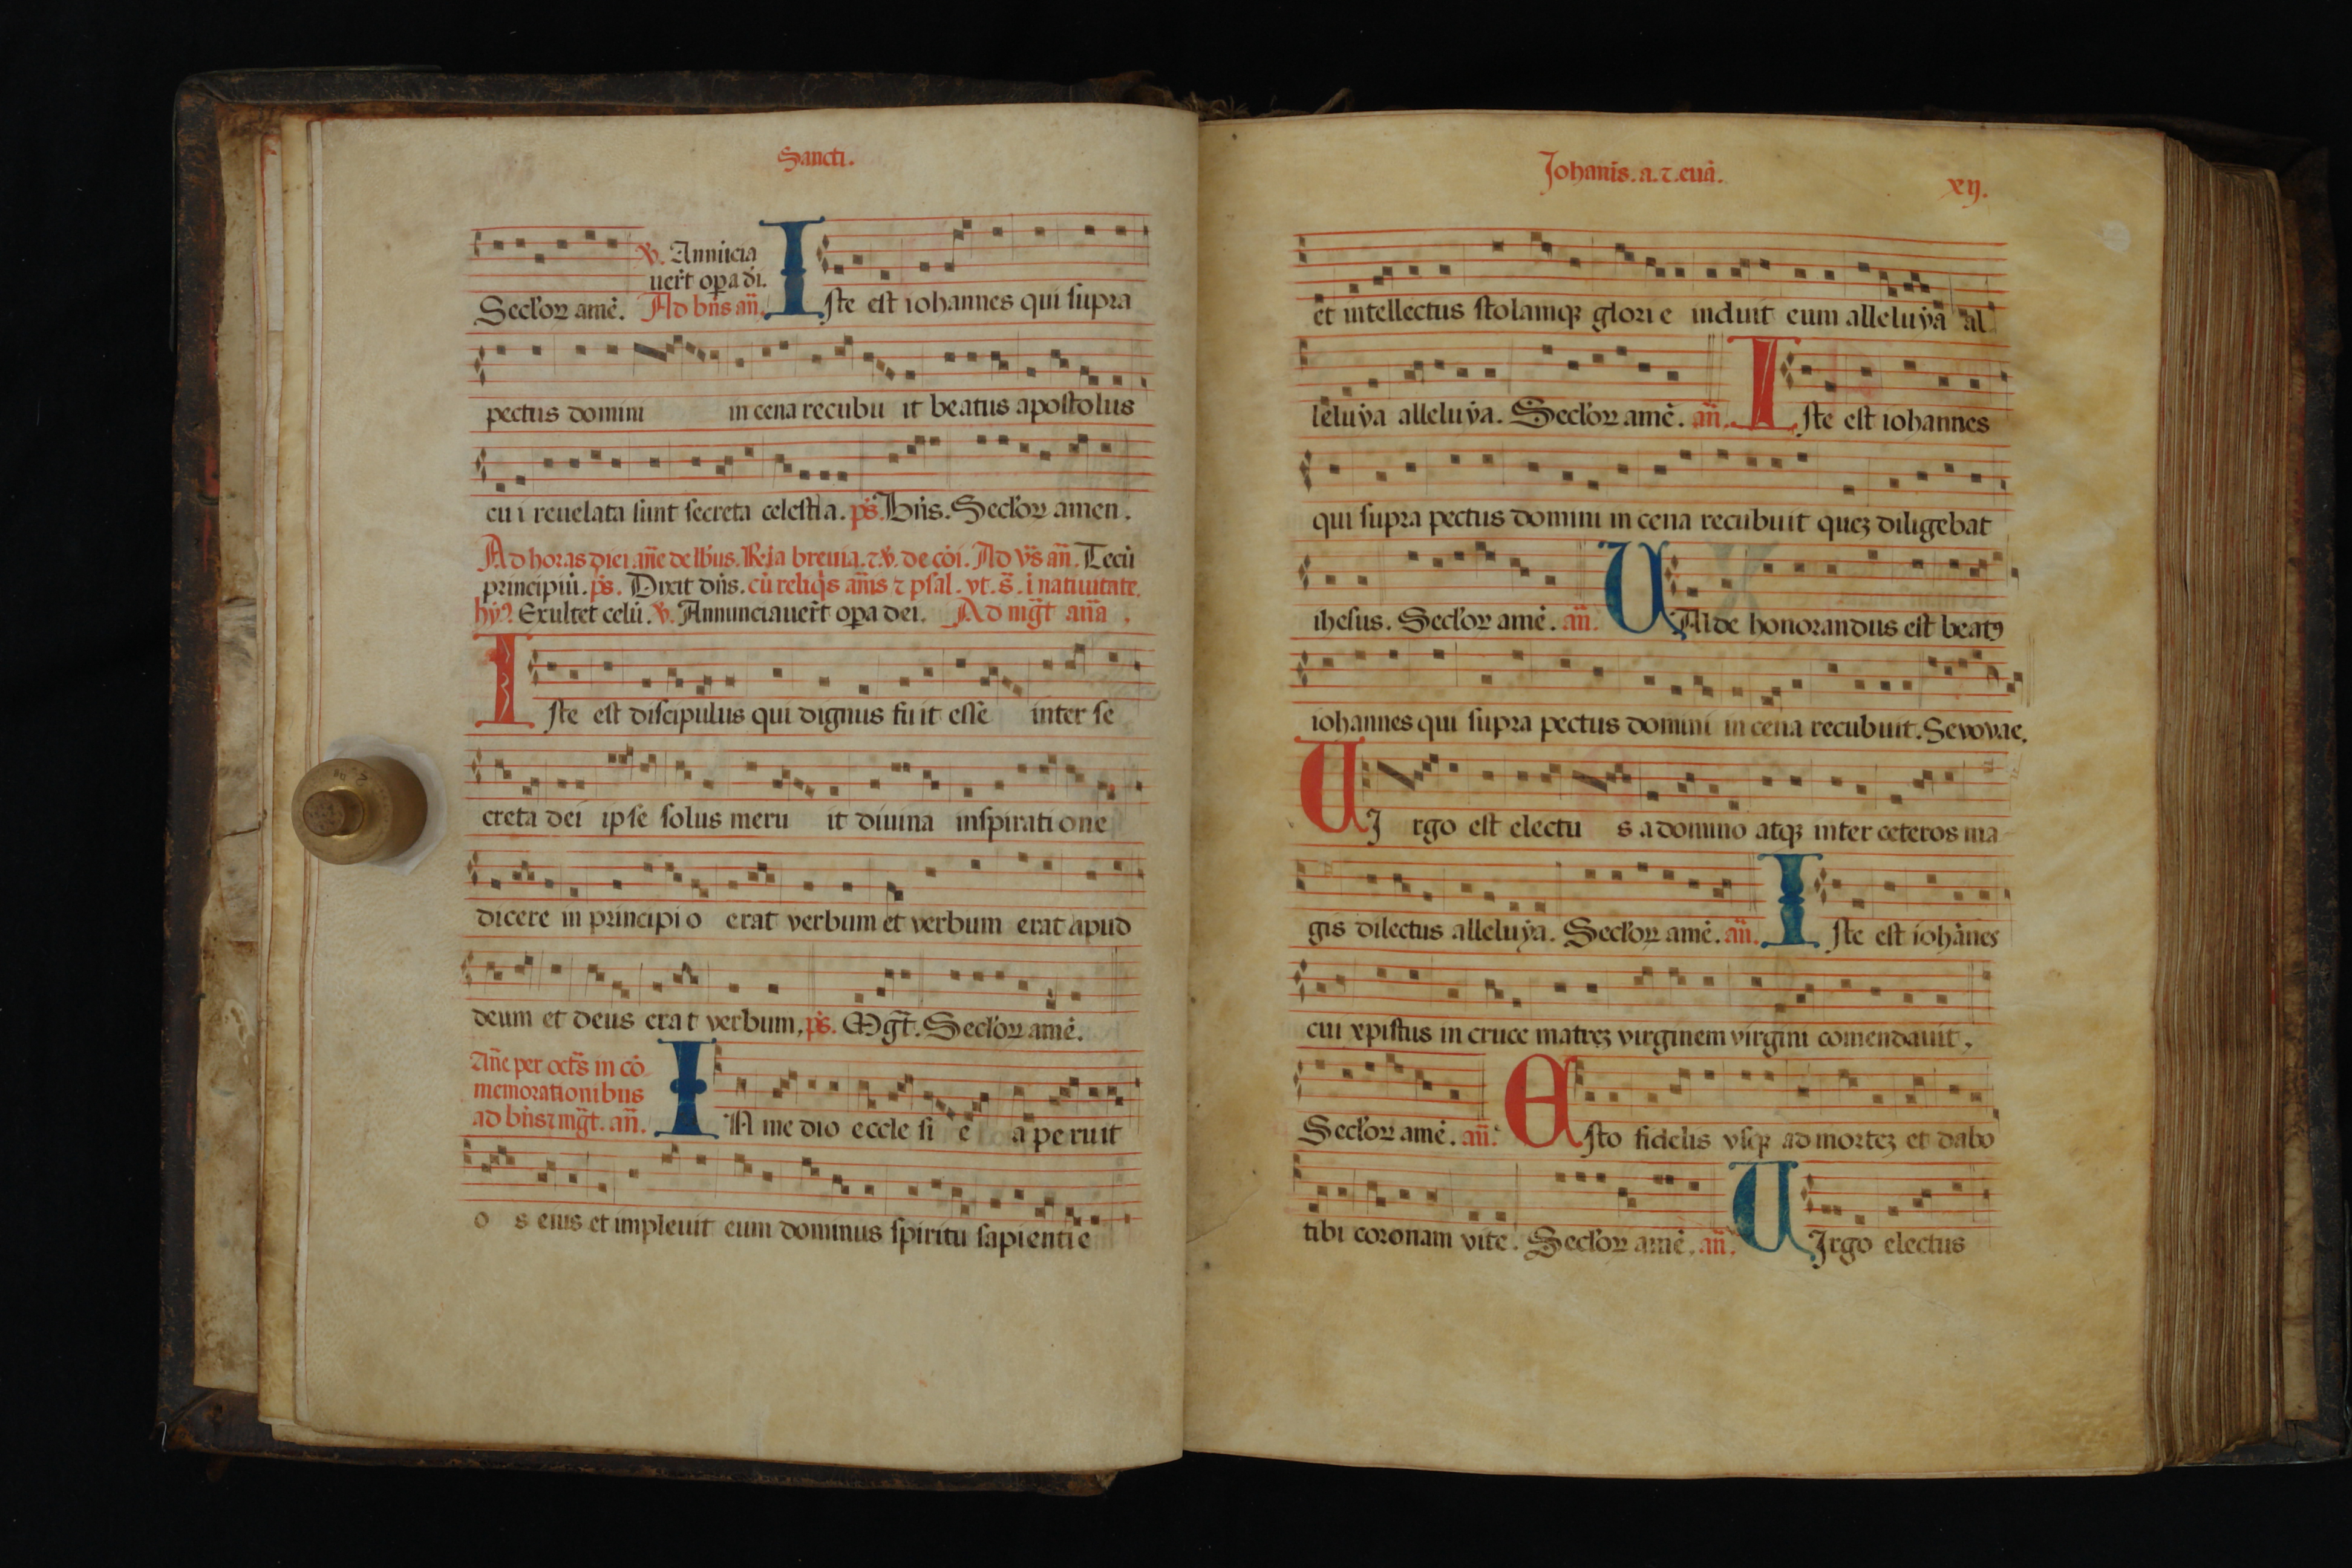 Sancti.
℣. Annūcia
uer̄t op̱a di.
Secl'oꝝ amē. Ad bn̄s an̄. Iste est iohannes qui supra
pectus domini in cena recubu it beatus apostolus
cu i reuelata sunt secreta celestia. ps̄. Bn̄s. Secl'oꝝ amen.
Ad horas diei. an̄e de lbus. R̄ia breuia. ⁊ ℣. de cōi. Ad vs̄ an̄. Tecū
principiū. ps̄. Dixit dn̄s. cū reliqs an̄is ⁊ psal. vt. s̄. i natiuitate.
hy̅. Exultet celū. ℣. Annunciauer̄t op̱a dei. Ad mḡt an̄a.
Iste est discipulus qui dignus fuit esse inter se
creta dei ipse solus meru it diuina inspirati one
dicere in principi o erat verbum et verbum erat apud
deum et deus erat verbum. ps̄. Mḡt. Secl'oꝝ amē.
An̄e per oct̄s in cō
memorationibus
ad bn̄s ⁊ mḡt. an̄. IN me dio eccle si e a pe ruit
o s eius et impleuit eum dominus spiritu sapienti e
Johanīs. a. ⁊. euā. xij.
et intellectus stolamqꝫ glori e induit eum alleluya al
leluya alleluya. Secl'oꝝ amē. an̄. Iste est iohannes
qui supra pectus domini in cena recubuit queꝫ diligebat
ihesus. Secl'oꝝ amē. an̄. UAlde honorandus est beatꝰ
iohannes qui supra pectus domini in cena recubuit. Sevovae.
UI rgo est electu s a domino atqꝫ inter ceteros ma
gis dilectus alleluya. Secl'oꝝ amē. an̄. Iste est iohānes
cui xpistus in cruce matreꝫ virginem virgini comendauit.
Secl'oꝝ amē. an̄. Esto fidelis vsqꝫ ad morteꝫ et dabo
tibi coronam vite. Secl'oꝝ amē. an̄. UIrgo electus